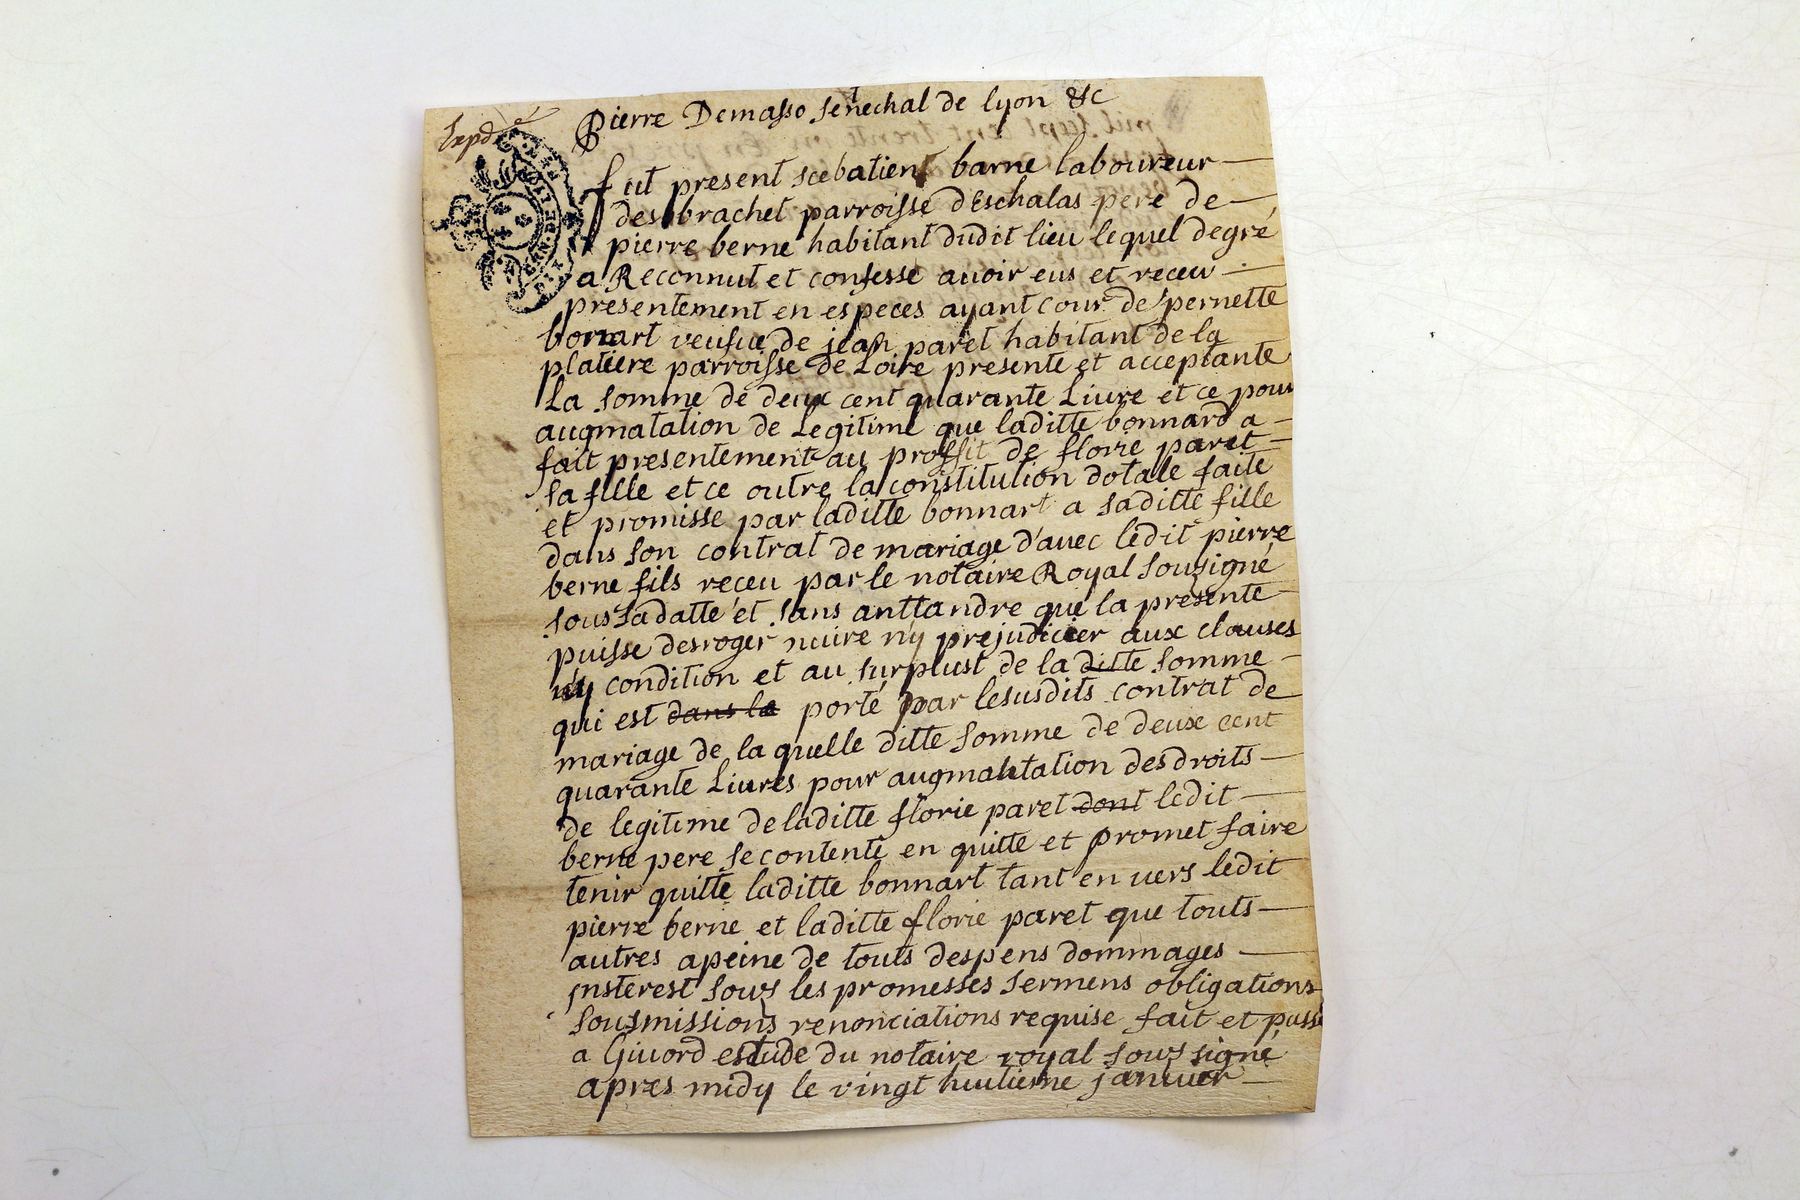 Expd.e
Pierre Demasso senechal de lyon &c
fut present scebatient barne laboureur
des brachet parroisse dEschalas pere de
pierre berne habitant dudit lieu lequel degré
a Reconnut et confesse auoir eus et receu
presentement en especes ayant cour de pernette
bonnart veufue de jean paret habitant de la
platiere parroisse de Loire presente et acceptante
La somme de deux cent quarante Liure et ce pour
augmatation de Legitime que laditte bonnard a
fait presentement au proffit de florie paret
sa fille et ce outre la constitution dotale faite
et promisse par laditte bonnart a saditte fille
dans son contrat de mariage d'auec ledit pierre
berne fils receu par le notaire Royal souzsigné
sous sadatte et sans anttandre que la presente
puisse desroger nuire n'y prejudicier aux clauses
n'y condition et au surplust de la ditte somme
qui est dans la porté par lesusdits contrat de
mariage de la quelle ditte somme de deux cent
quarante Liures pour augmahtation des droits
de legitime de laditte florie paret dont ledit
berne pere se contente en quitte et promet faire
tenir quitte laditte bonnart tant en uers ledit
pierre berne et laditte florie paret que touts
autres apeine de touts despens dommages
jnsterest souz les promesses sermens obligations
sousmissions renonciations requise fait et passé
a Giuord estude du notaire royal souz signé
apres midy le vingt huitieme januier